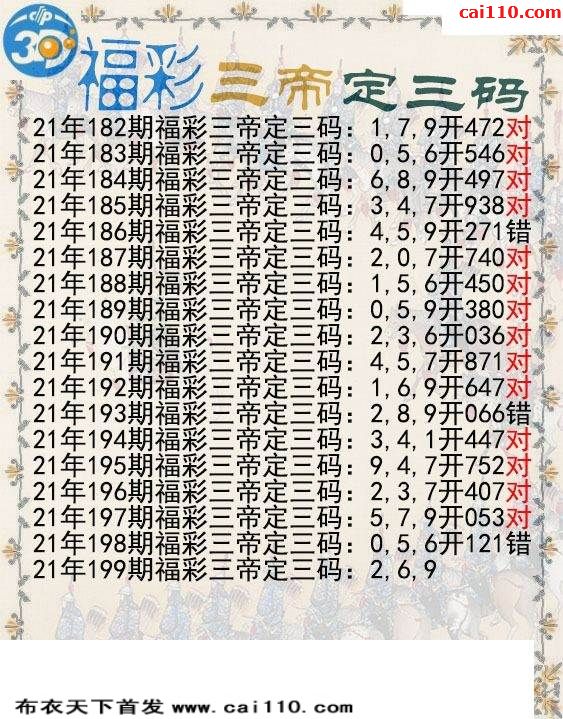 cai110.com
3D
福彩三帝定三码
21年182期福彩三帝定三码：1,7,9开472对
21年183期福彩三帝定三码：0,5,6开546对
21年184期福彩三帝定三码：6,8,9开497对
21年185期福彩三帝定三码：3,4,7开938对
21年186期福彩三帝定三码：4,5,9开271错
21年187期福彩三帝定三码：2,0,7开740对
21年188期福彩三帝定三码：1,5,6开450对
21年189期福彩三帝定三码：0,5,9开380对
21年190期福彩三帝定三码：2,3,6开036对
21年191期福彩三帝定三码：4,5,7开871对
21年192期福彩三帝定三码：1,6,9开647对
21年193期福彩三帝定三码：2,8,9开066错
21年194期福彩三帝定三码：3,4,1开447对
21年195期福彩三帝定三码：9,4,7开752对
21年196期福彩三帝定三码：2,3,7开407对
21年197期福彩三帝定三码：5,7,9开053对
21年198期福彩三帝定三码：0,5,6开121错
21年199期福彩三帝定三码：2,6,9
布衣天下首发 www.cai110.com